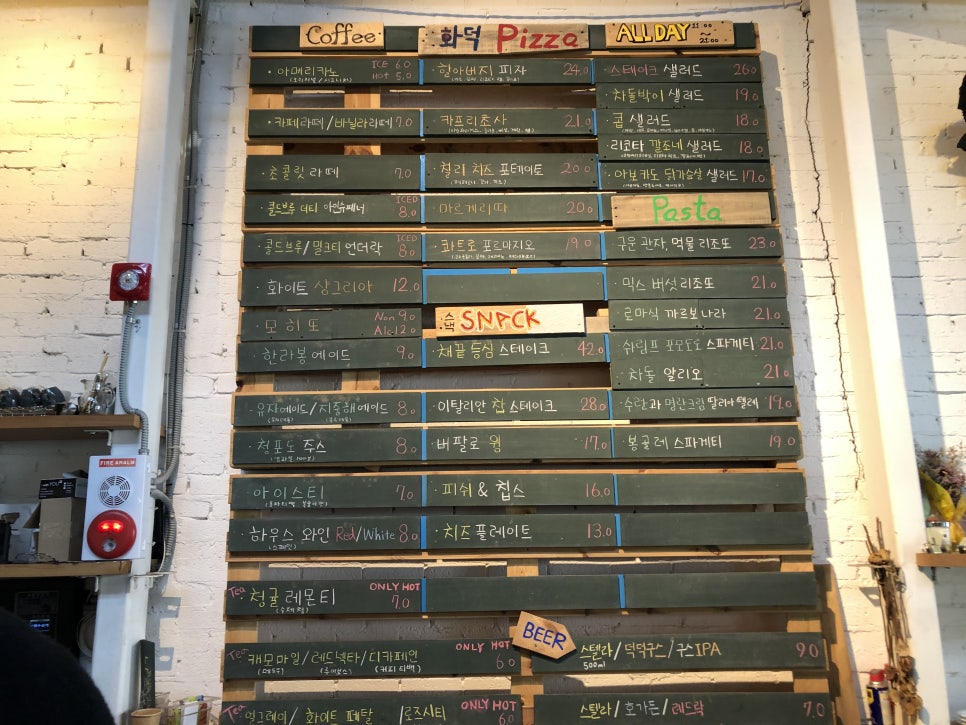 Coffee
· 아메리카노 ICE 6.0
HOT 5.0
· 카페라떼/바닐라라떼 7.0
· 초콜릿 라떼 7.0
· 콜드브루 더티 아인슈페너 ICED 8.0
· 콜드브루/밀크티 언더락 ICED 8.0
· 화이트 상그리아 12.0
· 모히또 Non 9.0
Alc 12.0
· 한라봉 에이드 9.0
· 유자에이드/지중해에이드 8.0
· 청포도 주스 8.0
· 아이스티 7.0
· 하우스 와인 Red/White 8.0
(스페인)
Tea · 청귤 레몬티 ONLY HOT 7.0
(수제청)
Tea · 캐모마일/레드넥타/디카페인 ONLY HOT 6.0
(커피 티백)
Tea · 얼그레이/화이트 페탈/로즈시티 ONLY HOT 6.0
화덕 Pizza
· 할아버지 피자 24.0
· 카프리초사 21.0
· 칠리 치즈 포테이토 20.0
· 마르게리따 20.0
· 콰트로 포르마지오 19.0
스낵 SNACK
· 채끝 등심 스테이크 42.0
· 이탈리안 찹 스테이크 28.0
· 버팔로 윙 17.0
· 피쉬 & 칩스 16.0
· 치즈 플레이트 13.0
ALL DAY 11:00
~ 21:00
· 스테이크 샐러드 26.0
· 차돌박이 샐러드 19.0
· 콥 샐러드 18.0
· 리코타 깔조네 샐러드 18.0
· 아보카도 닭가슴살 샐러드 17.0
Pasta
· 구운 관자, 먹물 리조또 23.0
· 믹스 버섯 리조또 21.0
· 로마식 까르보나라 21.0
· 쉬림프 포모도로 스파게티 21.0
· 차돌 알리오 21.0
· 수란과 명란크림 딸리아텔레 19.0
· 봉골레 스파게티 19.0
BEER
스텔라/덕덕구스/구스IPA 9.0
500ml
스텔라/호가든/레드락 7.0
FIRE ALARM